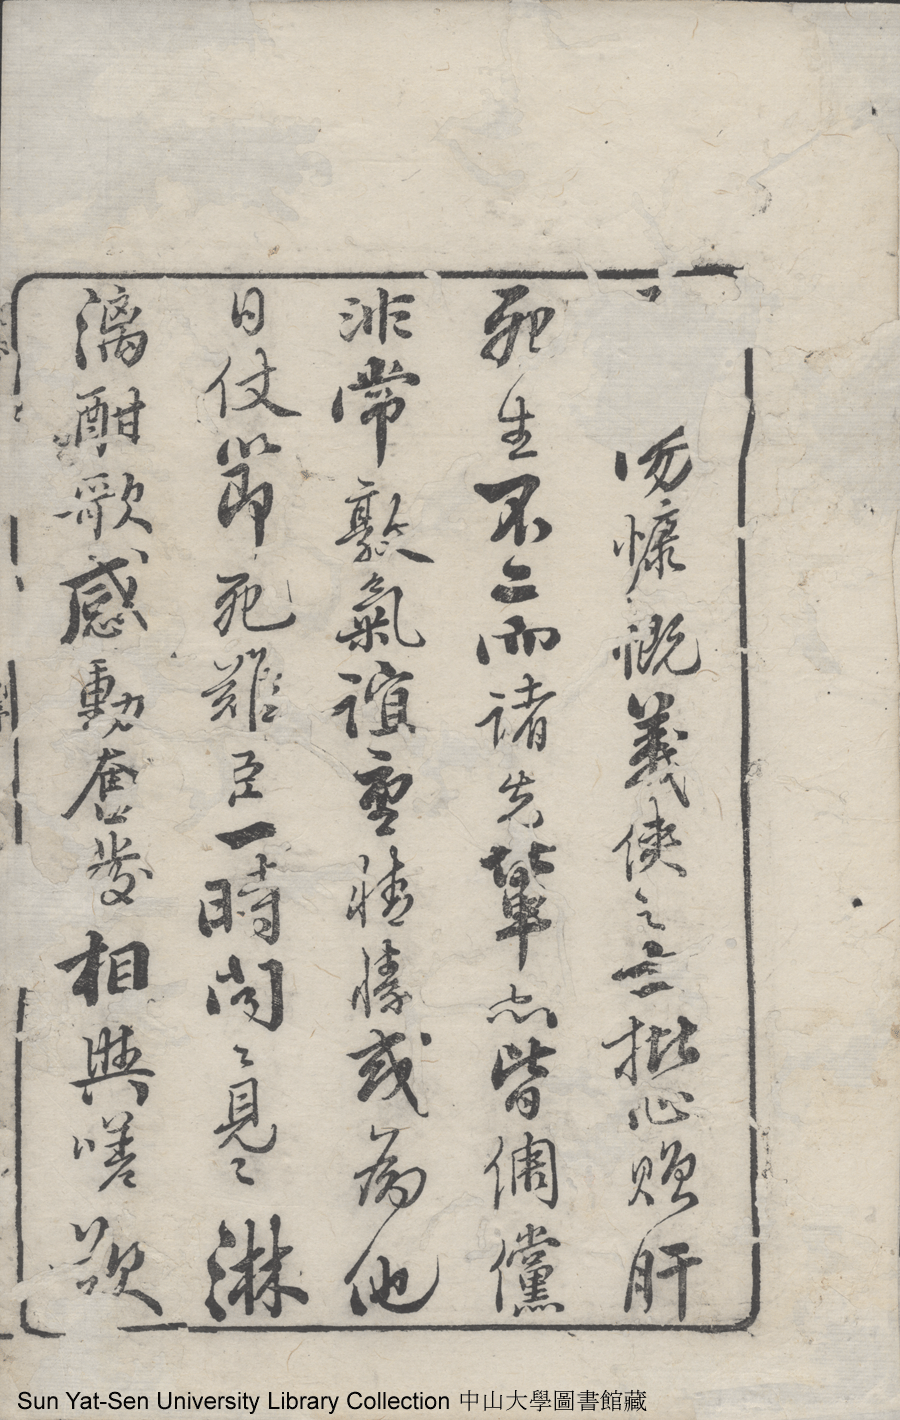 吻慷慨義俠之士批心贈肝
死生不二而諸先輩亦皆倜儻
非常敦氣誼重情悰或為他
日仗節死難臣一時誾〻亹〻淋
漓酣歌感動奮發相與嗟歎
Sun Yat-Sen University Library Collection 中山大學圖書館藏